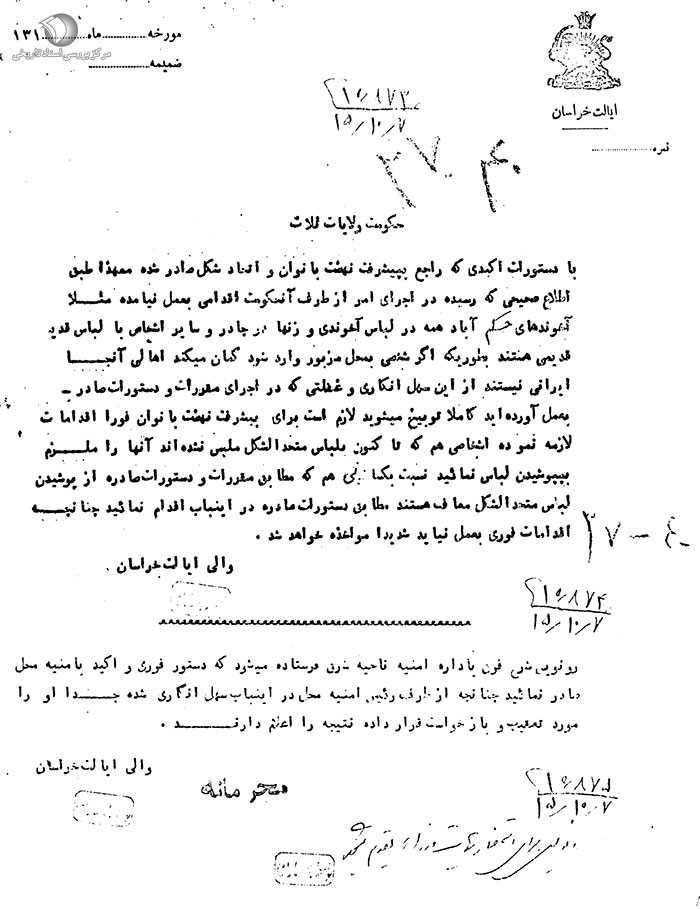 مورخه ............ ماه ............ ۱۳۱
ضمیمه ............
مرکز بررسی اسناد تاریخی
ایالت خراسان
نمره ............
۱۵۸۷۳
۱۵/۱۰/۷
۴۰ ۲۷
حکومت ولایات ثلاث
با دستورات اکیدی که راجع بپیشرفت نهضت بانوان و اتحاد شکل صادر شده معهذا طبق
اطلاع صحیحی که رسیده در اجرای امر از طرف آنحکومت اقدامی بعمل نیامده مثلا
آخوندهای حکم آباد همه در لباس آخوندی و زنها در چادر و سایر اشخاص با لباس قدیم
قدیمی هستند بطوریکه اگر شخصی بمحل مزبور وارد شود گمان میکند اهالی آنجا
ایرانی نیستند از این سهل انگاری و غفلتی که در اجرای مقررات و دستورات صادره
بعمل آورده اید کاملا توبیخ میشوید لازم است برای پیشرفت نهضت بانوان فورا اقدامات
لازمه نموده اشخاصی هم که تا کنون بلباس متحدالشکل ملبس نشده اند آنها را ملزم
بپوشیدن لباس نمائید نسبت بکسانی هم که مطابق مقررات و دستورات صادره از پوشیدن
لباس متحدالشکل معاف هستند مطابق دستورات صادره در اینباب اقدام نمائید چنانچه
اقدامات فوری بعمل نیاید شدیدا مواخذه خواهد شد .
۴۰ - ۲۷
والی ایالت خراسان
۱۵۸۷۴
۱۵/۱۰/۷
رونویس شرح فوق باداره امنیه ناحیه شرق فرستاده میشود که دستور فوری و اکید بامنیه محل
صادر نمائید چنانچه از طرف رئیس امنیه محل در اینباب سهل انگاری شده جدا او را
مورد تعقیب و بازخواست قرار داده نتیجه را اعلام دارند .
والی ایالت خراسان
محرمانه
۱۵۸۷۵
۱۵/۱۰/۷
برای استحضار وزارت تقدیم